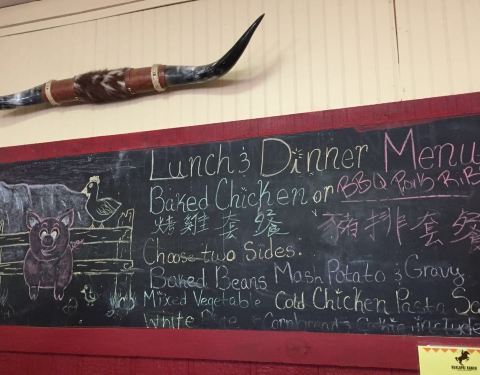 Lunch & Dinner Menu
Baked Chicken or BBQ Pork Rib
烤雞套餐 豬排套餐
Choose two Sides:
Baked Beans Mash Potato & Gravy
Mixed Vegetable Cold Chicken Pasta Sa
White Rice Cornbread & include